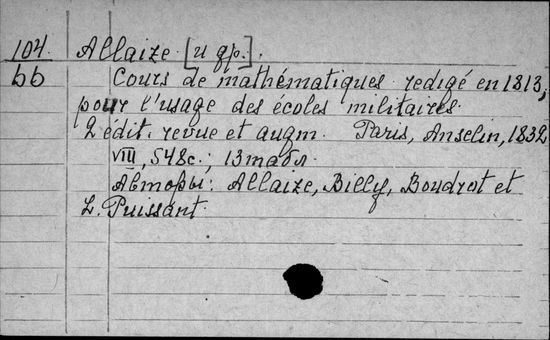 104 Allaize [и др.].
bb Cours de mathématiques redigé en 1813,
pour l'usage des écoles militaires.
2 édit. revue et augm. Paris, Anselin, 1832
VIII, 548 с.; 13 табл.
Авторы: Allaize, Billy, Boudrot et
L. Puissant.